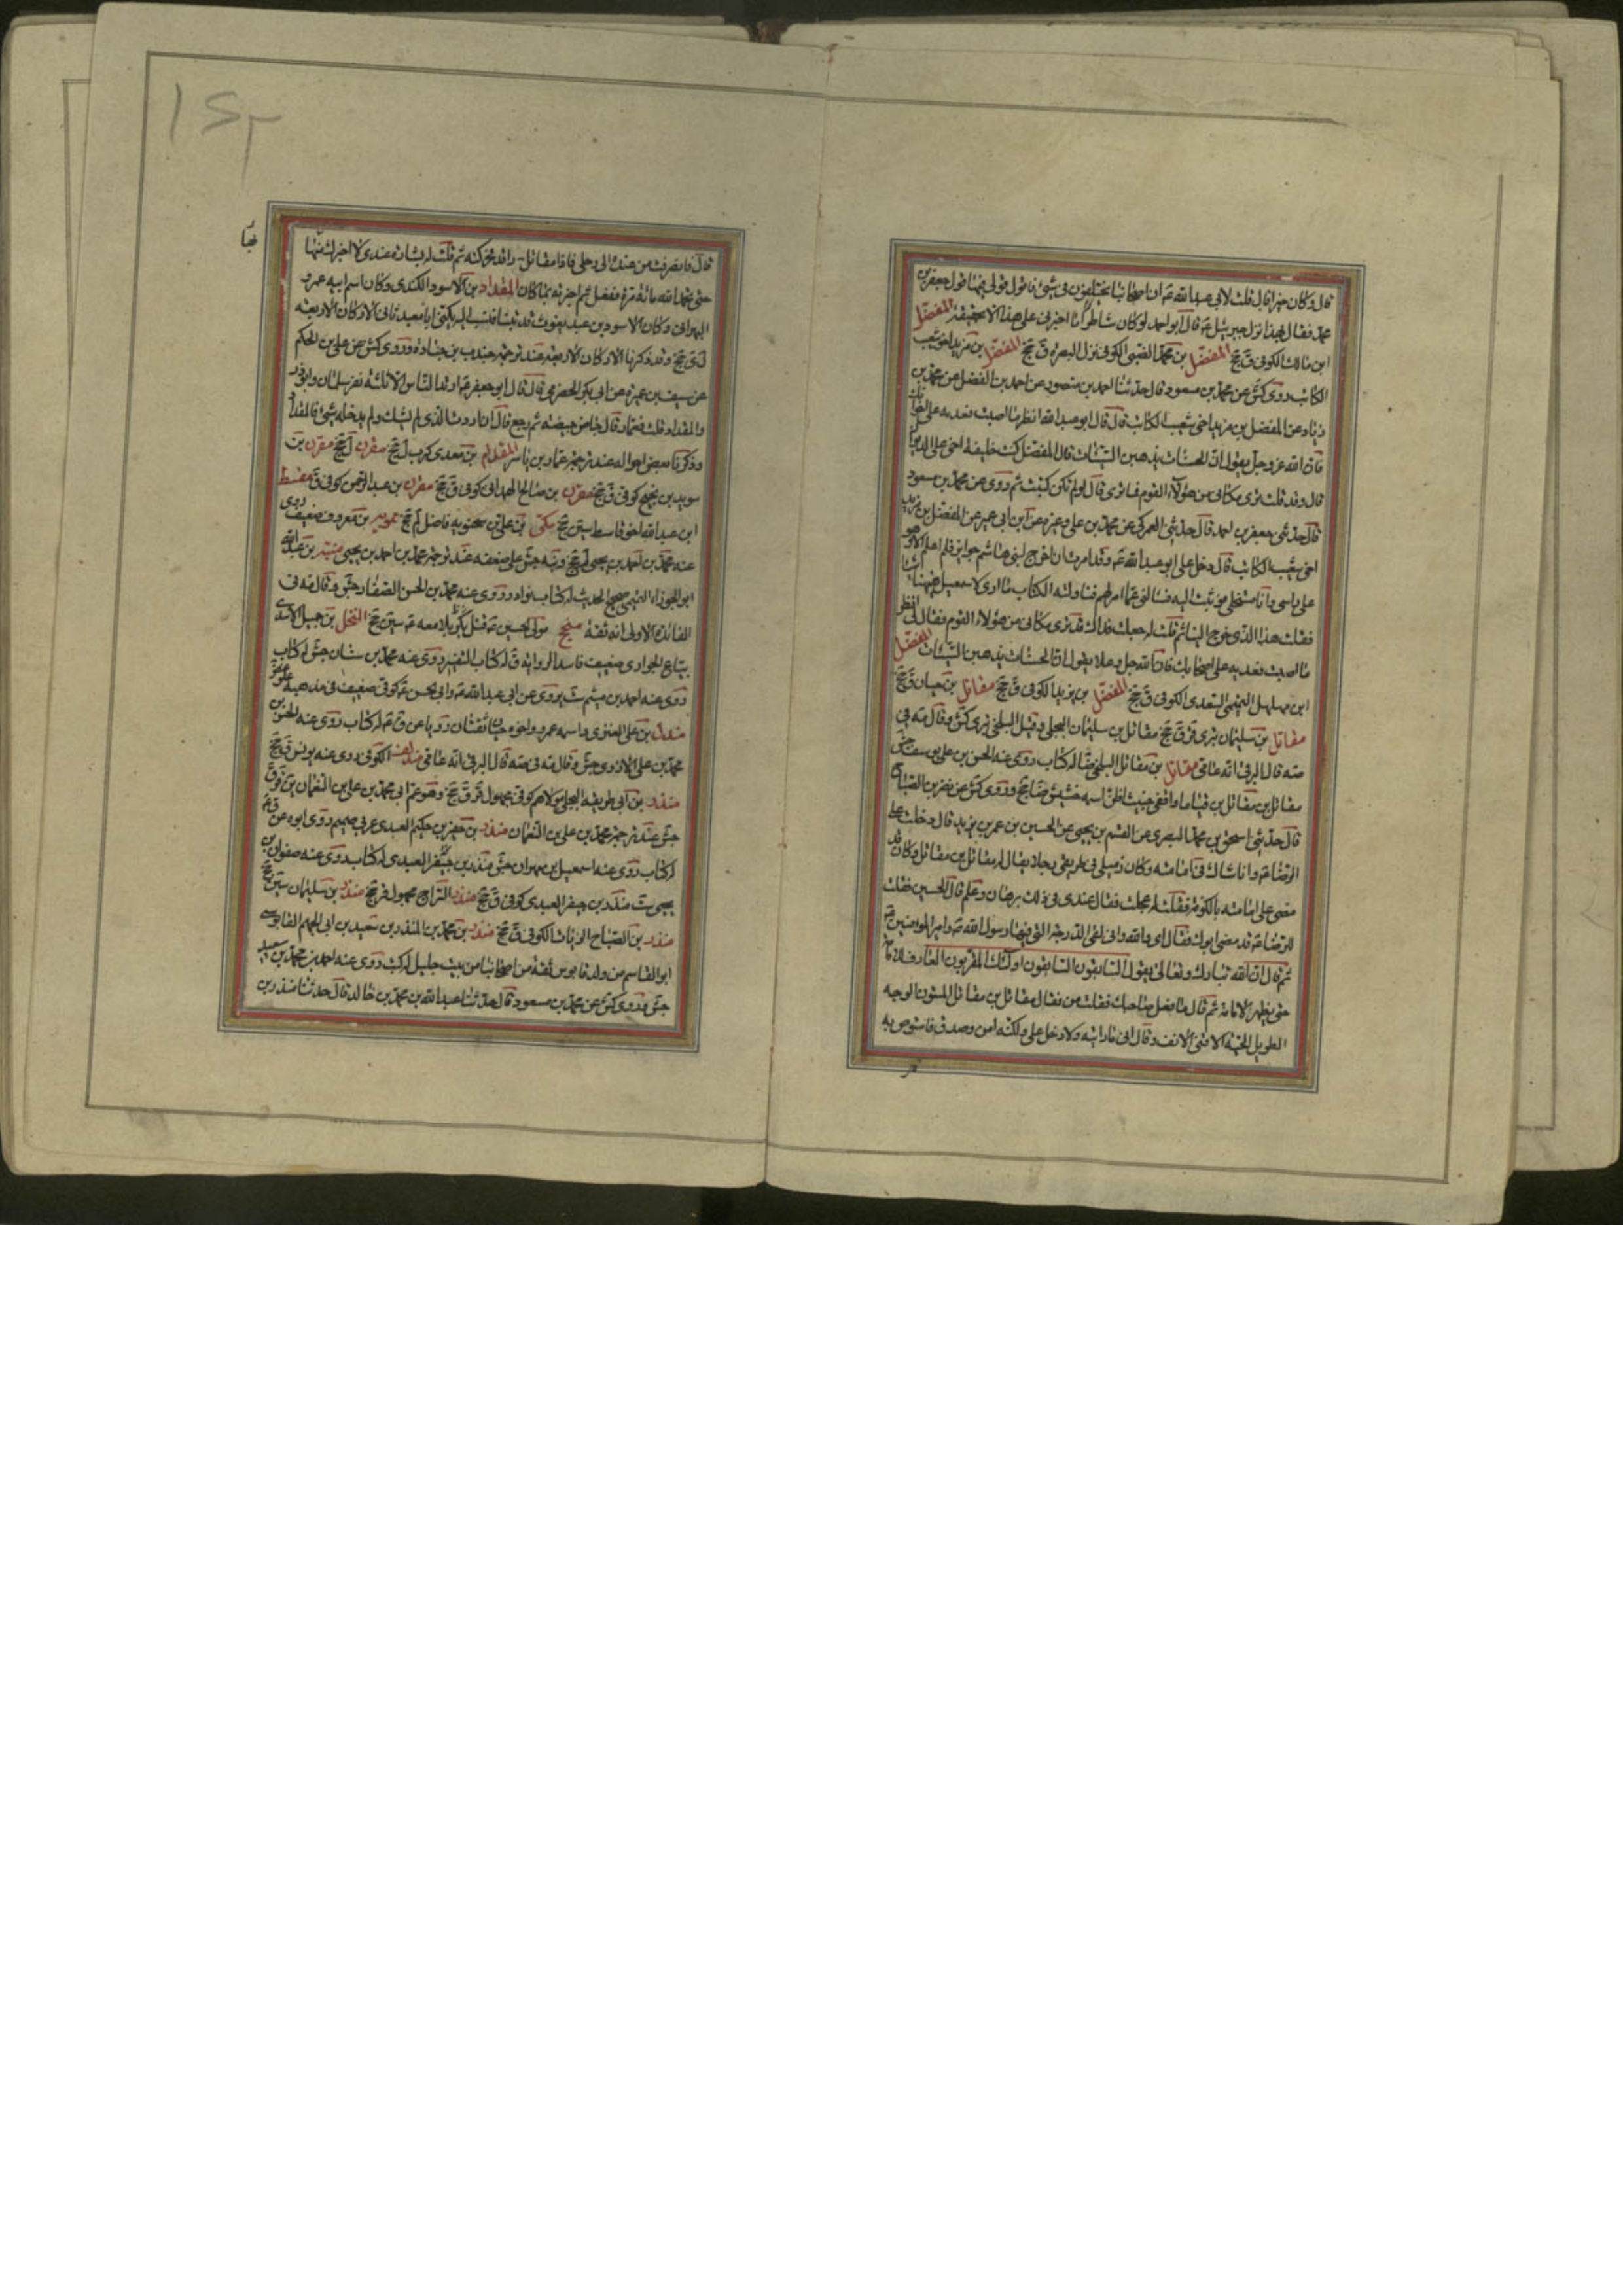 قال وكان خيرا قال قلت لابي عبد الله ع ان اصحابنا يختلفون في شئ فاقول قولي فيها قول جعفر بن
محمد فقال بهذا نزل جبرئيل ع قال ابو احمد لو كان شاطرا ما اخبرني على هذا الا بحقيقة المفضل
ابن مالك الكوفي ق جخ المفضل بن محمد الضبي الكوفي نزل البصرة ق جخ المفضل بن مزيد اخو شعيب
الكاتب روى كش عن محمد بن مسعود قال حدثنا احمد بن منصور عن احمد بن الفضل عن محمد بن
زياد عن المفضل بن مزيد اخي شعيب الكاتب قال قال ابو عبد الله انظر ما اصبت فعد به على اخوانك
فان الله عز وجل يقول ان الحسنات يذهبن السيئات قال المفضل كنت خليفة اخي على الديوان
قال وقد قلت ترى مكاني من هؤلاء القوم فما ترى قال لو لم تكن كنت ثم روى عن محمد بن مسعود
قال حدثني جعفر بن احمد قال حدثني العمركي عن محمد بن علي وغيره عن ابن ابي عمير عن المفضل بن مزيد
اخي شعيب الكاتب قال دخل علي ابو عبد الله ع وقد امرت ان اخرج لبني هاشم جوائز فلم اعلم الا وهو
على راسي وانا مستخلي فوثبت اليه فسالني عما امر لهم فناولته الكتاب ما ارى لاسمعيل ههنا شيئا
فقلت هذا الذي خرج الينا ثم قلت له جعلت فداك قد ترى مكاني من هؤلاء القوم فقال لي انظر
ما اصبت فعد به على اصحابك فان الله جل وعلا يقول ان الحسنات يذهبن السيئات المفضل
ابن مهلهل التميمي السعدي الكوفي ق جخ المفضل بن يزيد الكوفي ق جخ مقاتل بن حيان ق جخ
مقاتل بن سليمان بتري قر ق جخ مقاتل بن سليمان البجلي وقيل البلخي بتري كش وقال مه في
صه قال البرقي انه عامي مقاتل بن مقاتل البلخي ضا له كتاب روى عنه الحسن بن علي بن يوسف جش
مقاتل بن مقاتل بن قياما واقفي خبيث اظن اسمه ضا جخ وروى كش عن نصر بن الصباح
قال حدثني اسحق بن محمد البصري عن القسم بن يحيى عن الحسين بن عمر بن يزيد قال دخلت على
الرضا ع وانا شاك في امامته وكان زميلي في طريقي رجلا يقال له مقاتل بن مقاتل وكان قد
مضى على امامته بالكوفة فقلت له عجلت فقال عندي في ذلك برهان وعلم قال الحسين فقلت
للرضا ع قد مضى ابوك فقال اي والله واني لفي الدرجة التي فيها رسول الله ص وامير المؤمنين ع
ثم قال ان الله تبارك وتعالى يقول السابقون السابقون اولئك المقربون
حتى يظهر الامامة ثم قال ما فعل صاحبك فقلت من فقال مقاتل بن مقاتل المسنون الوجه
الطويل اللحية الاقنى الانف وقال اني ما رايته ولا دخل علي ولكنه امن وصدق فاستوص به
١٤٢
قال فانصرفت من عنده الى رحلي فاذا مقاتل راقد فحركته ثم قلت له بشارة عندي لا اخبرك بها
حتى تحمد الله مائة مرة ففعل ثم اخبرته بما كان المقداد بن الاسود الكندي وكان اسم ابيه عمرو
البهراني وكان الاسود بن عبد يغوث قد تبناه فنسب اليه يكنى ابا معبد ثاني الاركان الاربعة
ل ي جخ وقد ذكرنا الاركان الاربعة عند ترجمة جندب بن جنادة وروى كش عن علي بن الحكم
عن سيف بن عميرة عن ابي بكر الحضرمي قال قال ابو جعفر ع ارتد الناس الا ثلثة نفر سلمان وابو ذر
والمقداد قلت فعمار قال جاض جيضة ثم رجع قال ان اردت الذي لم يشك ولم يدخله شئ فالمقداد
وذكرنا بعض احواله عند ترجمة عمار بن ياسر المقدام بن معدي كرب ل جخ مقرن ل جخ مقرن بن
سويد بن نجيح كوفي ق جخ مقرن بن صالح الهمداني كوفي ق جخ مقرن بن عبد الرحمن كوفي ق مقسط
ابن عبد الله اخو قاسط سين جخ مكي بن علي بن سختويه فاضل لم جخ ممويه بن معروف ضعيف روى
عنه محمد بن احمد بن يحيى لم جخ ونبه جش على ضعفه عند ترجمة محمد بن احمد بن يحيى منبه بن عبد الله
ابو الجوزاء التميمي صحيح الحديث له كتاب نوادر روى عنه محمد بن الحسن الصفار جش وقال مه في
الفائدة الاولى انه ثقة منجح مولى الحسين ع قتل بكربلا معه ع سين جخ المنخل بن جميل الاسدي
بياع الجواري ضعيف فاسد الرواية ق له كتاب التفسير روى عنه محمد بن سنان جش له كتاب
روى عنه احمد بن ميثم ست يروى عن ابي عبد الله ع وابي الحسن ع كوفي ضعيف في مذهبه غلو غض
مندل بن علي العنزي واسمه عمرو واخوه حيان ثقتان رويا عن ق ع له كتاب روى عنه الحسن بن
محمد بن علي الازدي جش وقال مه في صه قال البرقي انه عامي مندلف الكوفي روى عنه يونس ق جخ
منذر بن ابي طريفة البجلي مولاهم كوفي مجهول قر ق جخ وهو عم ابي محمد بن علي بن النعمان ين قر ق
جش عند ترجمة محمد بن علي بن النعمان منذر بن جفير بن حكيم العبدي عربي صميم روى ابوه عن ق ع
له كتاب روى عنه اسمعيل بن مهران جش منذر بن جيفر العبدي له كتاب روى عنه صفوان بن
يحيى ست منذر بن جيفر العبدي كوفي ق جخ منذر السراج مجهول قر جخ منذر بن سليمان سين جخ
منذر بن الصباح الزيات الكوفي ق جخ منذر بن محمد بن المنذر بن سعيد بن ابي الجهم القابوسي
ابو القاسم من ولد قابوس ثقة من اصحابنا من بيت جليل له كتب روى عنه احمد بن محمد بن سعيد
جش وروى كش عن محمد بن مسعود قال حدثنا عبد الله بن محمد بن خالد قال حدثنا منذر بن